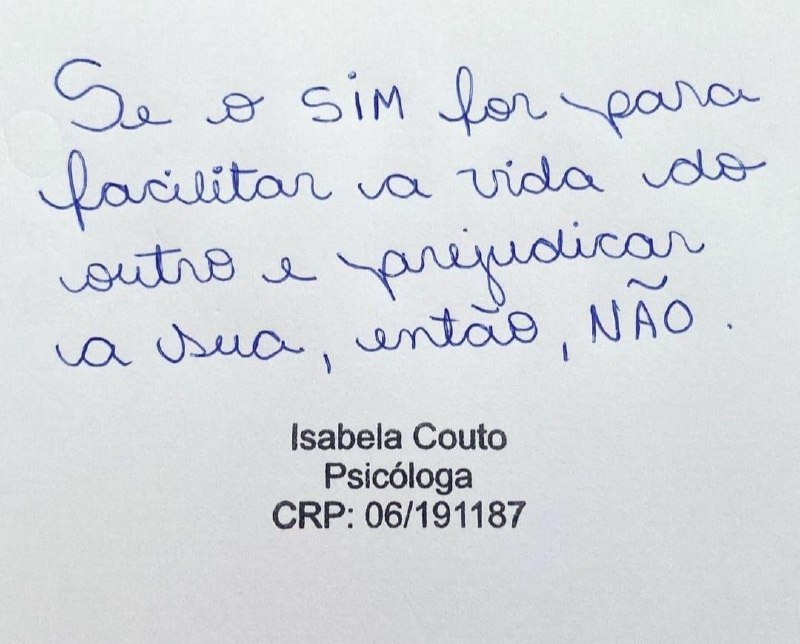 Se o SIM for para
facilitar a vida do
outro e prejudicar
a sua, então, NÃO.
Isabela Couto
Psicóloga
CRP: 06/191187